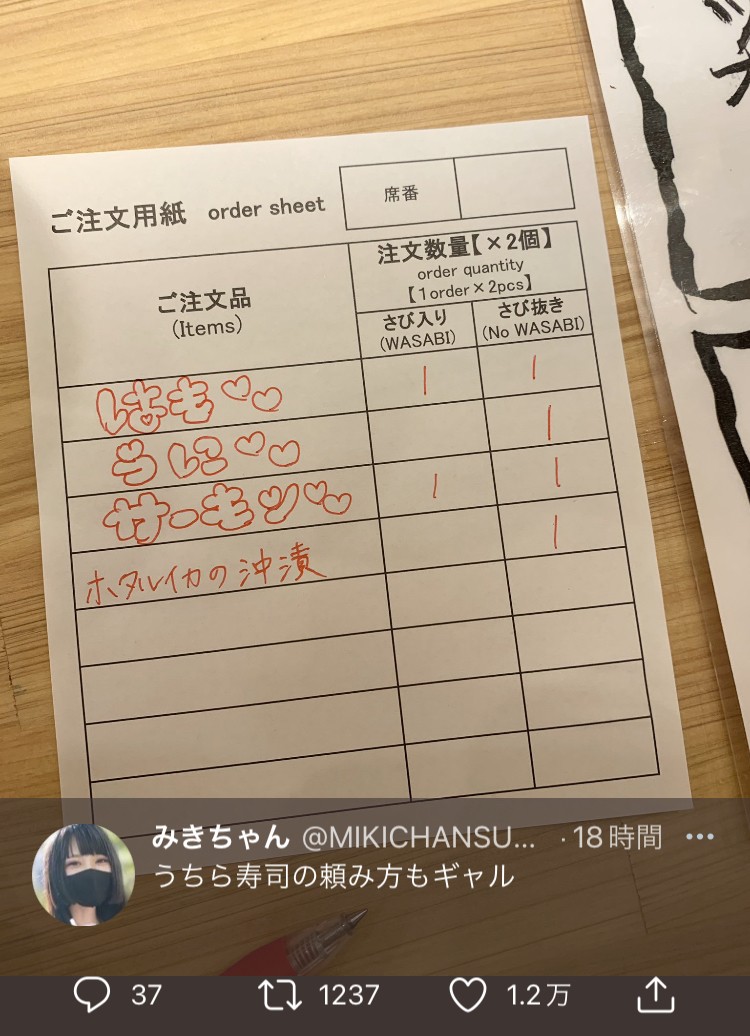 ご注文用紙 order sheet
席番
ご注文品
(Items)
注文数量【×2個】
order quantity
【1order×2pcs】
さび入り
(WASABI)
さび抜き
(No WASABI)
はも♡♡ 1 1
うに♡♡ 1
サーモン♡♡ 1 1
ホタルイカの沖漬 1
みきちゃん @MIKICHANSU... ·18時間 •••
うちら寿司の頼み方もギャル
37 1237 1.2万